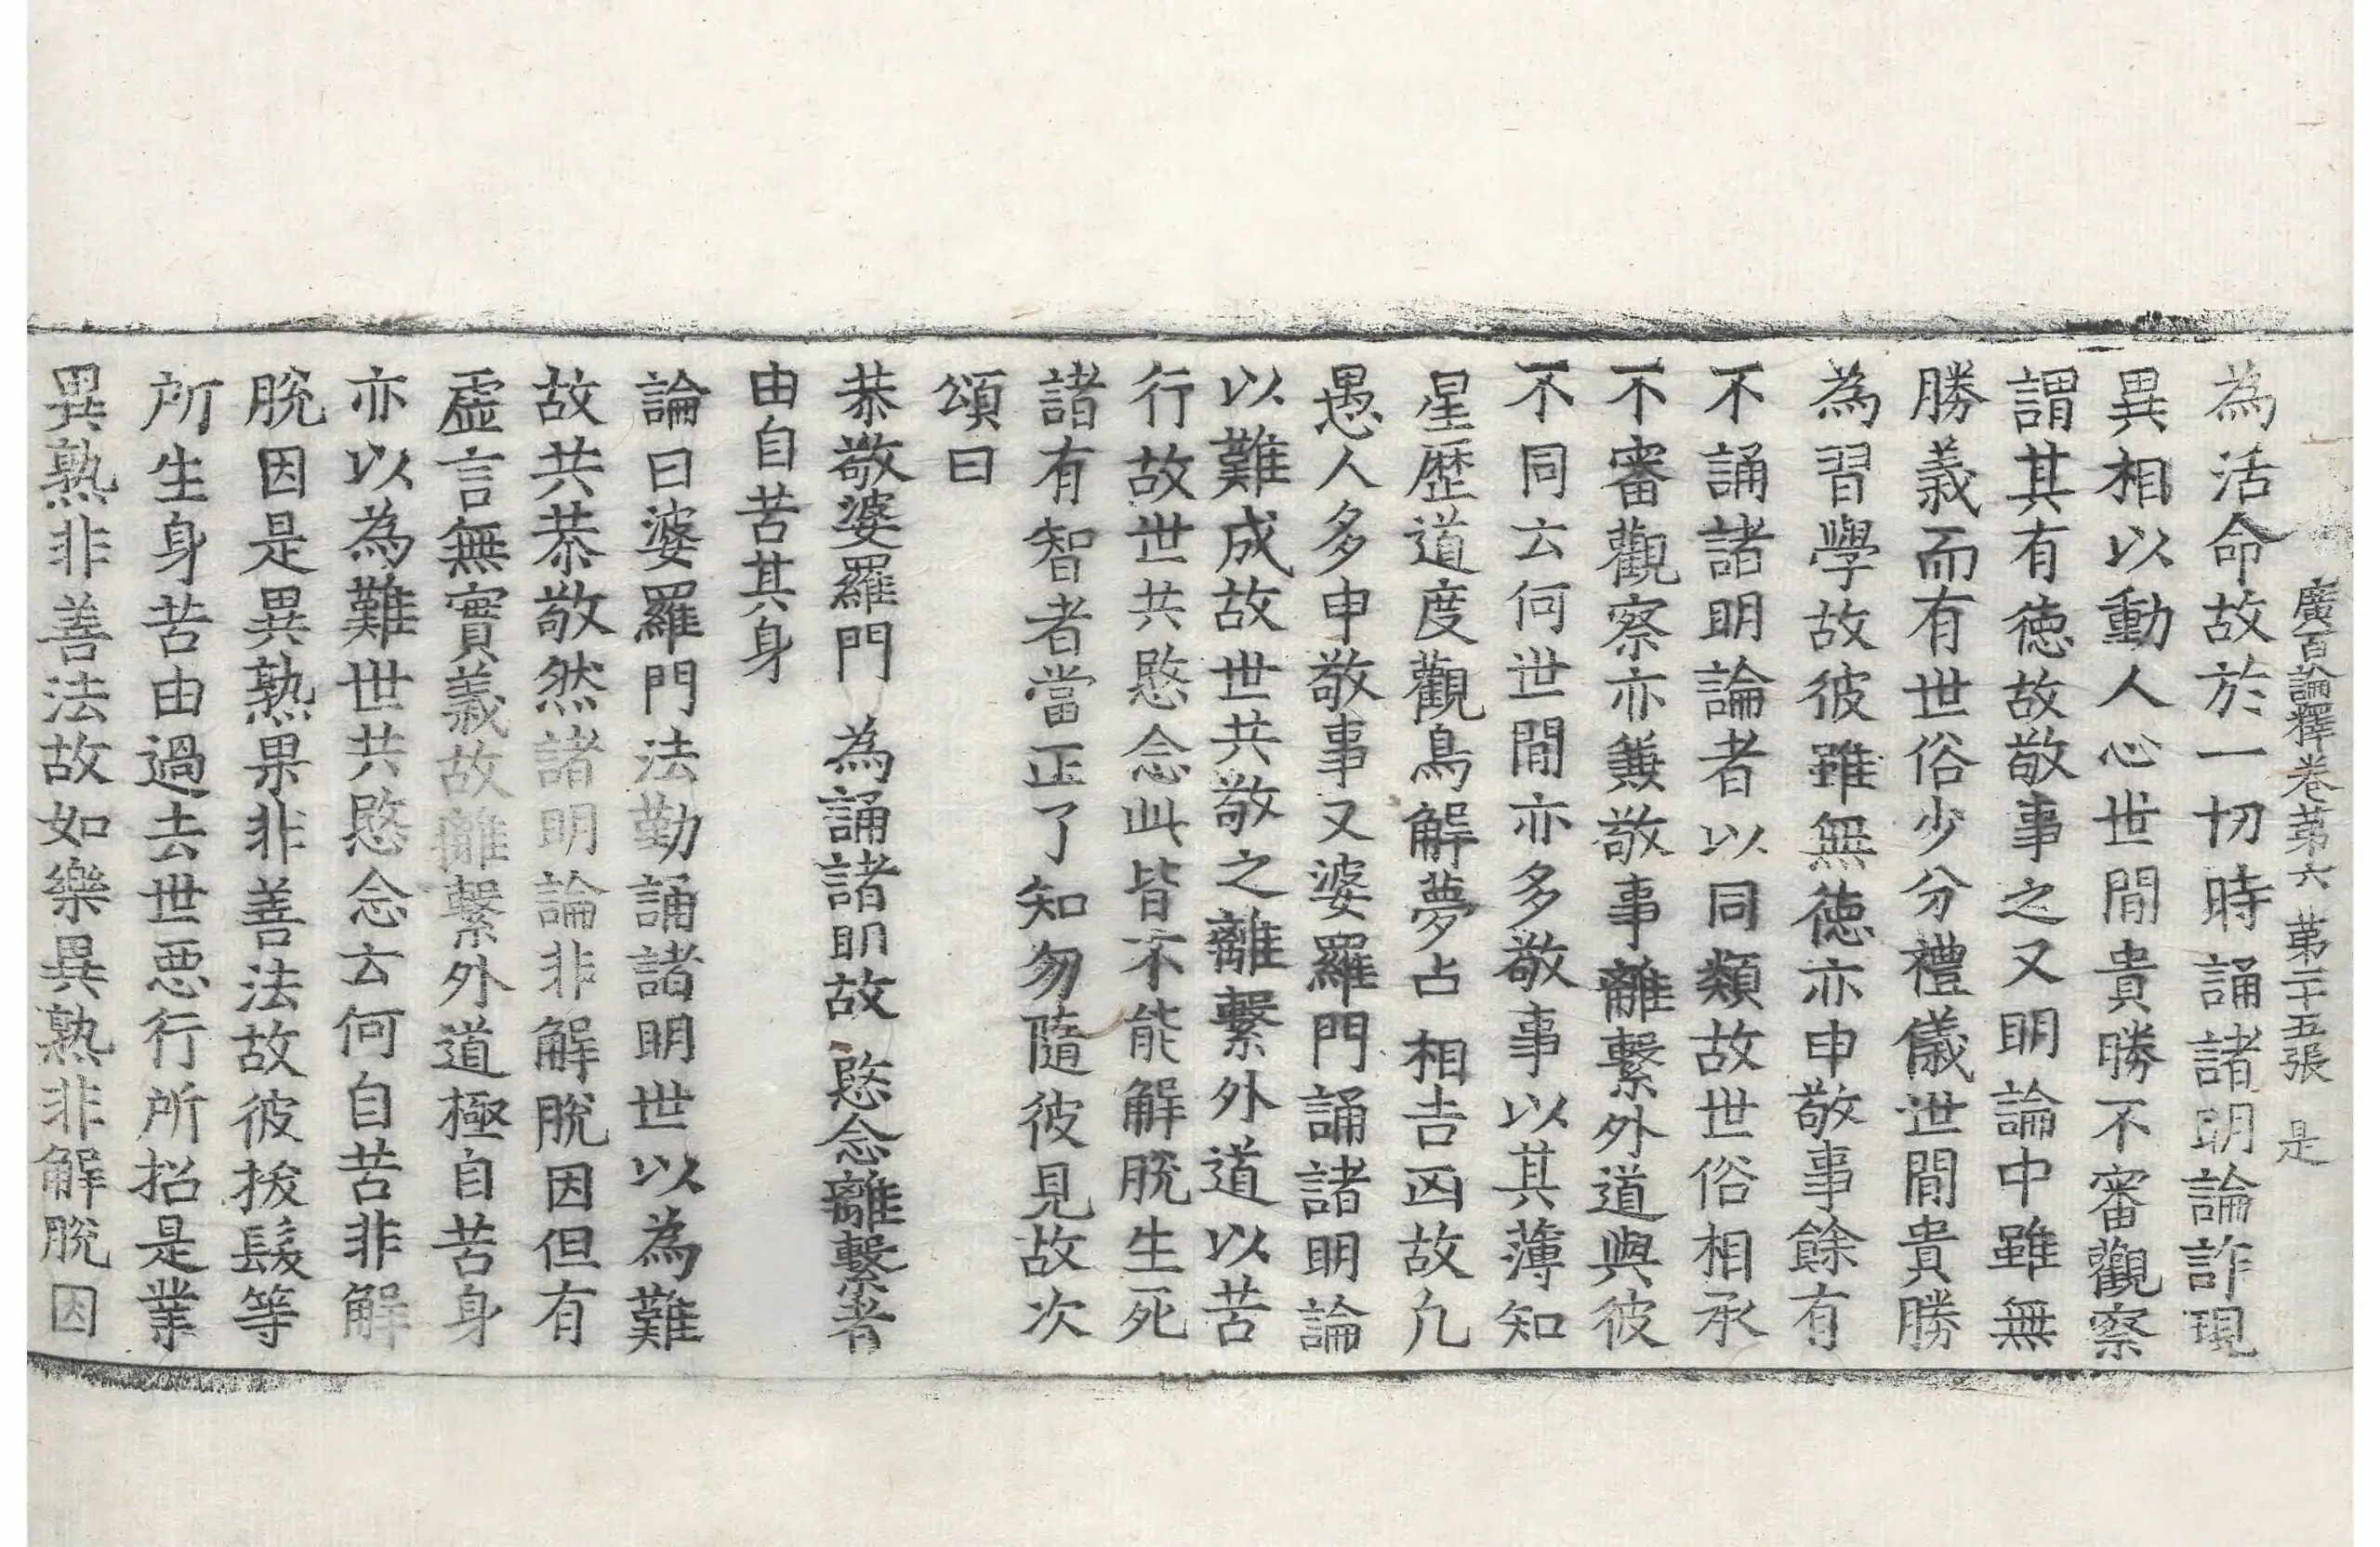 廣百論釋卷第六 第二十五張 是
為活命故於一切時誦諸明論詐現
異相以動人心世間貴勝不審觀察
謂其有徳故敬事之又明論中雖無
勝義而有世俗少分禮儀世間貴勝
為習學故彼雖無徳亦申敬事餘有
不誦諸明論者以同類故世俗相承
不審觀察亦兼敬事離繫外道與彼
不同云何世間亦多敬事以其薄知
星歷道度觀鳥解夢占相吉凶故凡
愚人多申敬事又婆羅門誦諸明論
以難成故世共敬之離繫外道以苦
行故世共愍念此皆不能解脫生死
諸有智者當正了知勿隨彼見故次
頌曰
恭敬婆羅門 為誦諸明故 愍念離繫者
由自苦其身
論曰婆羅門法勤誦諸明世以為難
故共恭敬然諸明論非解脫因但有
虛言無實義故離繫外道極自苦身
亦以為難世共愍念云何自苦非解
脫因是異熟果非善法故彼拔髮等
所生身苦由過去世惡行所招是業
異熟非善法故如樂異熟非解脫因